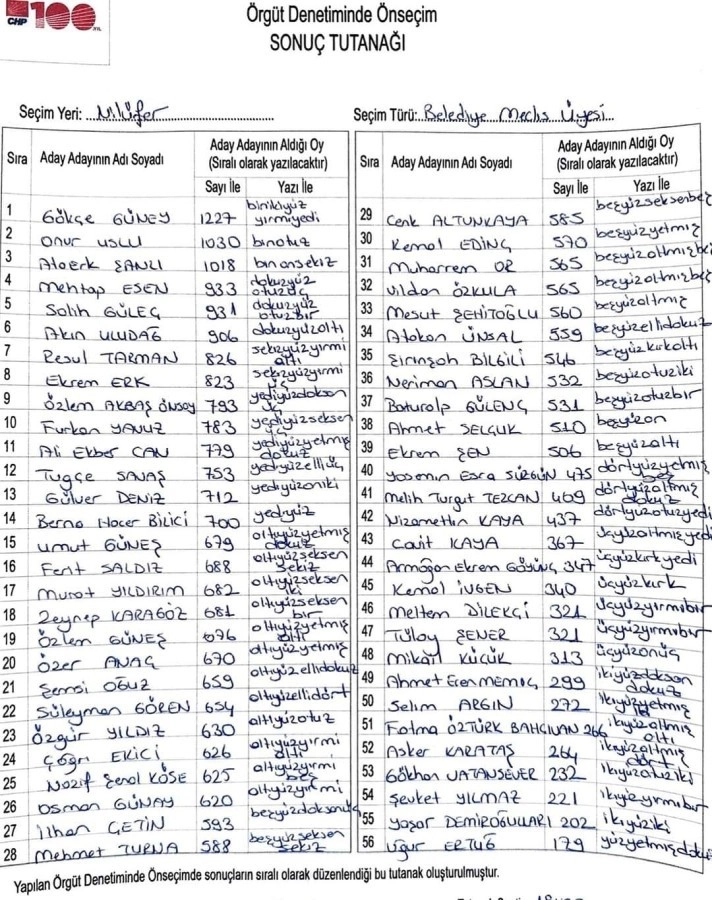 CHP 100. YIL
Örgüt Denetiminde Önseçim
SONUÇ TUTANAĞI
Seçim Yeri: Nilüfer
Seçim Türü: Belediye Meclis Üyesi
Sıra Aday Adayının Adı Soyadı Aday Adayının Aldığı Oy (Sıralı olarak yazılacaktır) Sayı İle Yazı İle
1 Gökçe GÜNEY 1227 binikiyüz yirmiyedi
2 Onur USLU 1030 binotuz
3 Ataerk ŞANLI 1018 binonsekiz
4 Mehtap ESEN 933 dokuzyüz otuzüç
5 Salih GÜLEÇ 931 dokuzyüz otuzbir
6 Akın ULUDAĞ 906 dokuzyüzaltı
7 Resul TARMAN 826 sekizyüzyirmi altı
8 Ekrem ERK 823 sekizyüzyirmi üç
9 Özlem AKBAŞ ÖNSOY 793 yediyüzdoksan üç
10 Furkan YAVUZ 783 yediyüzseksen üç
11 Ali Ekber CAN 779 yediyüzyetmiş dokuz
12 Tuğçe SAVAŞ 753 yediyüzelliüç
13 Gülver DENİZ 712 yediyüzoniki
14 Berna Hacer BİLİCİ 700 yediyüz
15 Umut GÜNEŞ 679 altıyüzyetmiş dokuz
16 Ferit SALDIZ 688 altıyüzseksen sekiz
17 Murat YILDIRIM 682 altıyüzseksen iki
18 Zeynep KARAGÖZ 681 altıyüzseksen bir
19 Özlem GÜNEŞ 676 altıyüzyetmiş altı
20 Özer ANAÇ 670 altıyüzyetmiş
21 Şemsi OĞUZ 659 altıyüzellidokuz
22 Süleyman GÖREN 654 altıyüzellidört
23 Özgür YILDIZ 630 altıyüzotuz
24 Çağrı EKİCİ 626 altıyüzyirmi altı
25 Nazif Şenol KÖSE 625 altıyüzyirmi beş
26 Osman GÜNAY 620 altıyüzyirmi
27 İlhan ÇETİN 593 beşyüzdoksanüç
28 Mehmet TURNA 588 beşyüzseksen sekiz
Sıra Aday Adayının Adı Soyadı Aday Adayının Aldığı Oy (Sıralı olarak yazılacaktır) Sayı İle Yazı İle
29 Cenk ALTUNKAYA 585 beşyüzseksenbeş
30 Kemal EDİNÇ 570 beşyüzyetmiş
31 Muharrem OR 565 beşyüzaltmışbeş
32 Vildan ÖZKULA 565 beşyüzaltmışbeş
33 Mesut ŞEHİTOĞLU 560 beşyüzaltmış
34 Atakan ÜNSAL 559 beşyüzellidokuz
35 Şirinşah BİLGİLİ 546 beşyüzkırkaltı
36 Neriman ASLAN 532 beşyüzotuziki
37 Baturalp GÜLENÇ 531 beşyüzotuzbir
38 Ahmet SELÇUK 510 beşyüzon
39 Ekrem ŞEN 506 beşyüzaltı
40 Yasemin Esra SÜRGÜN 475 dörtyüzyetmiş beş
41 Melih Turgut TEZCAN 469 dörtyüzaltmış dokuz
42 Nizamettin KAYA 437 dörtyüzotuzyedi
43 Cavit KAYA 367 üçyüzaltmışyedi
44 Armağan Ekrem GÖYÜNÇ 347 üçyüzkırkyedi
45 Kemal İVGEN 340 üçyüzkırk
46 Meltem DİLEKÇİ 321 üçyüzyirmibir
47 Tülay ŞENER 321 üçyüzyirmibir
48 Mikail KÜÇÜK 313 üçyüzonüç
49 Ahmet Eren MEMOÇ 299 ikiyüzdoksan dokuz
50 Selim ARGIN 272 ikiyüzyetmiş iki
51 Fatma ÖZTÜRK BAHÇIVAN 266 ikiyüzaltmış altı
52 Asker KARATAŞ 264 ikiyüzaltmış dört
53 Gökhan VATANSEVER 232 ikiyüzotuziki
54 Şevket YILMAZ 221 ikiyüzyirmibir
55 Yaşar DEMİROĞULLARI 202 ikiyüziki
56 Uğur ERTUĞ 179 yüzyetmişdokuz
Yapılan Örgüt Denetiminde Önseçimde sonuçların sıralı olarak düzenlendiği bu tutanak oluşturulmuştur.